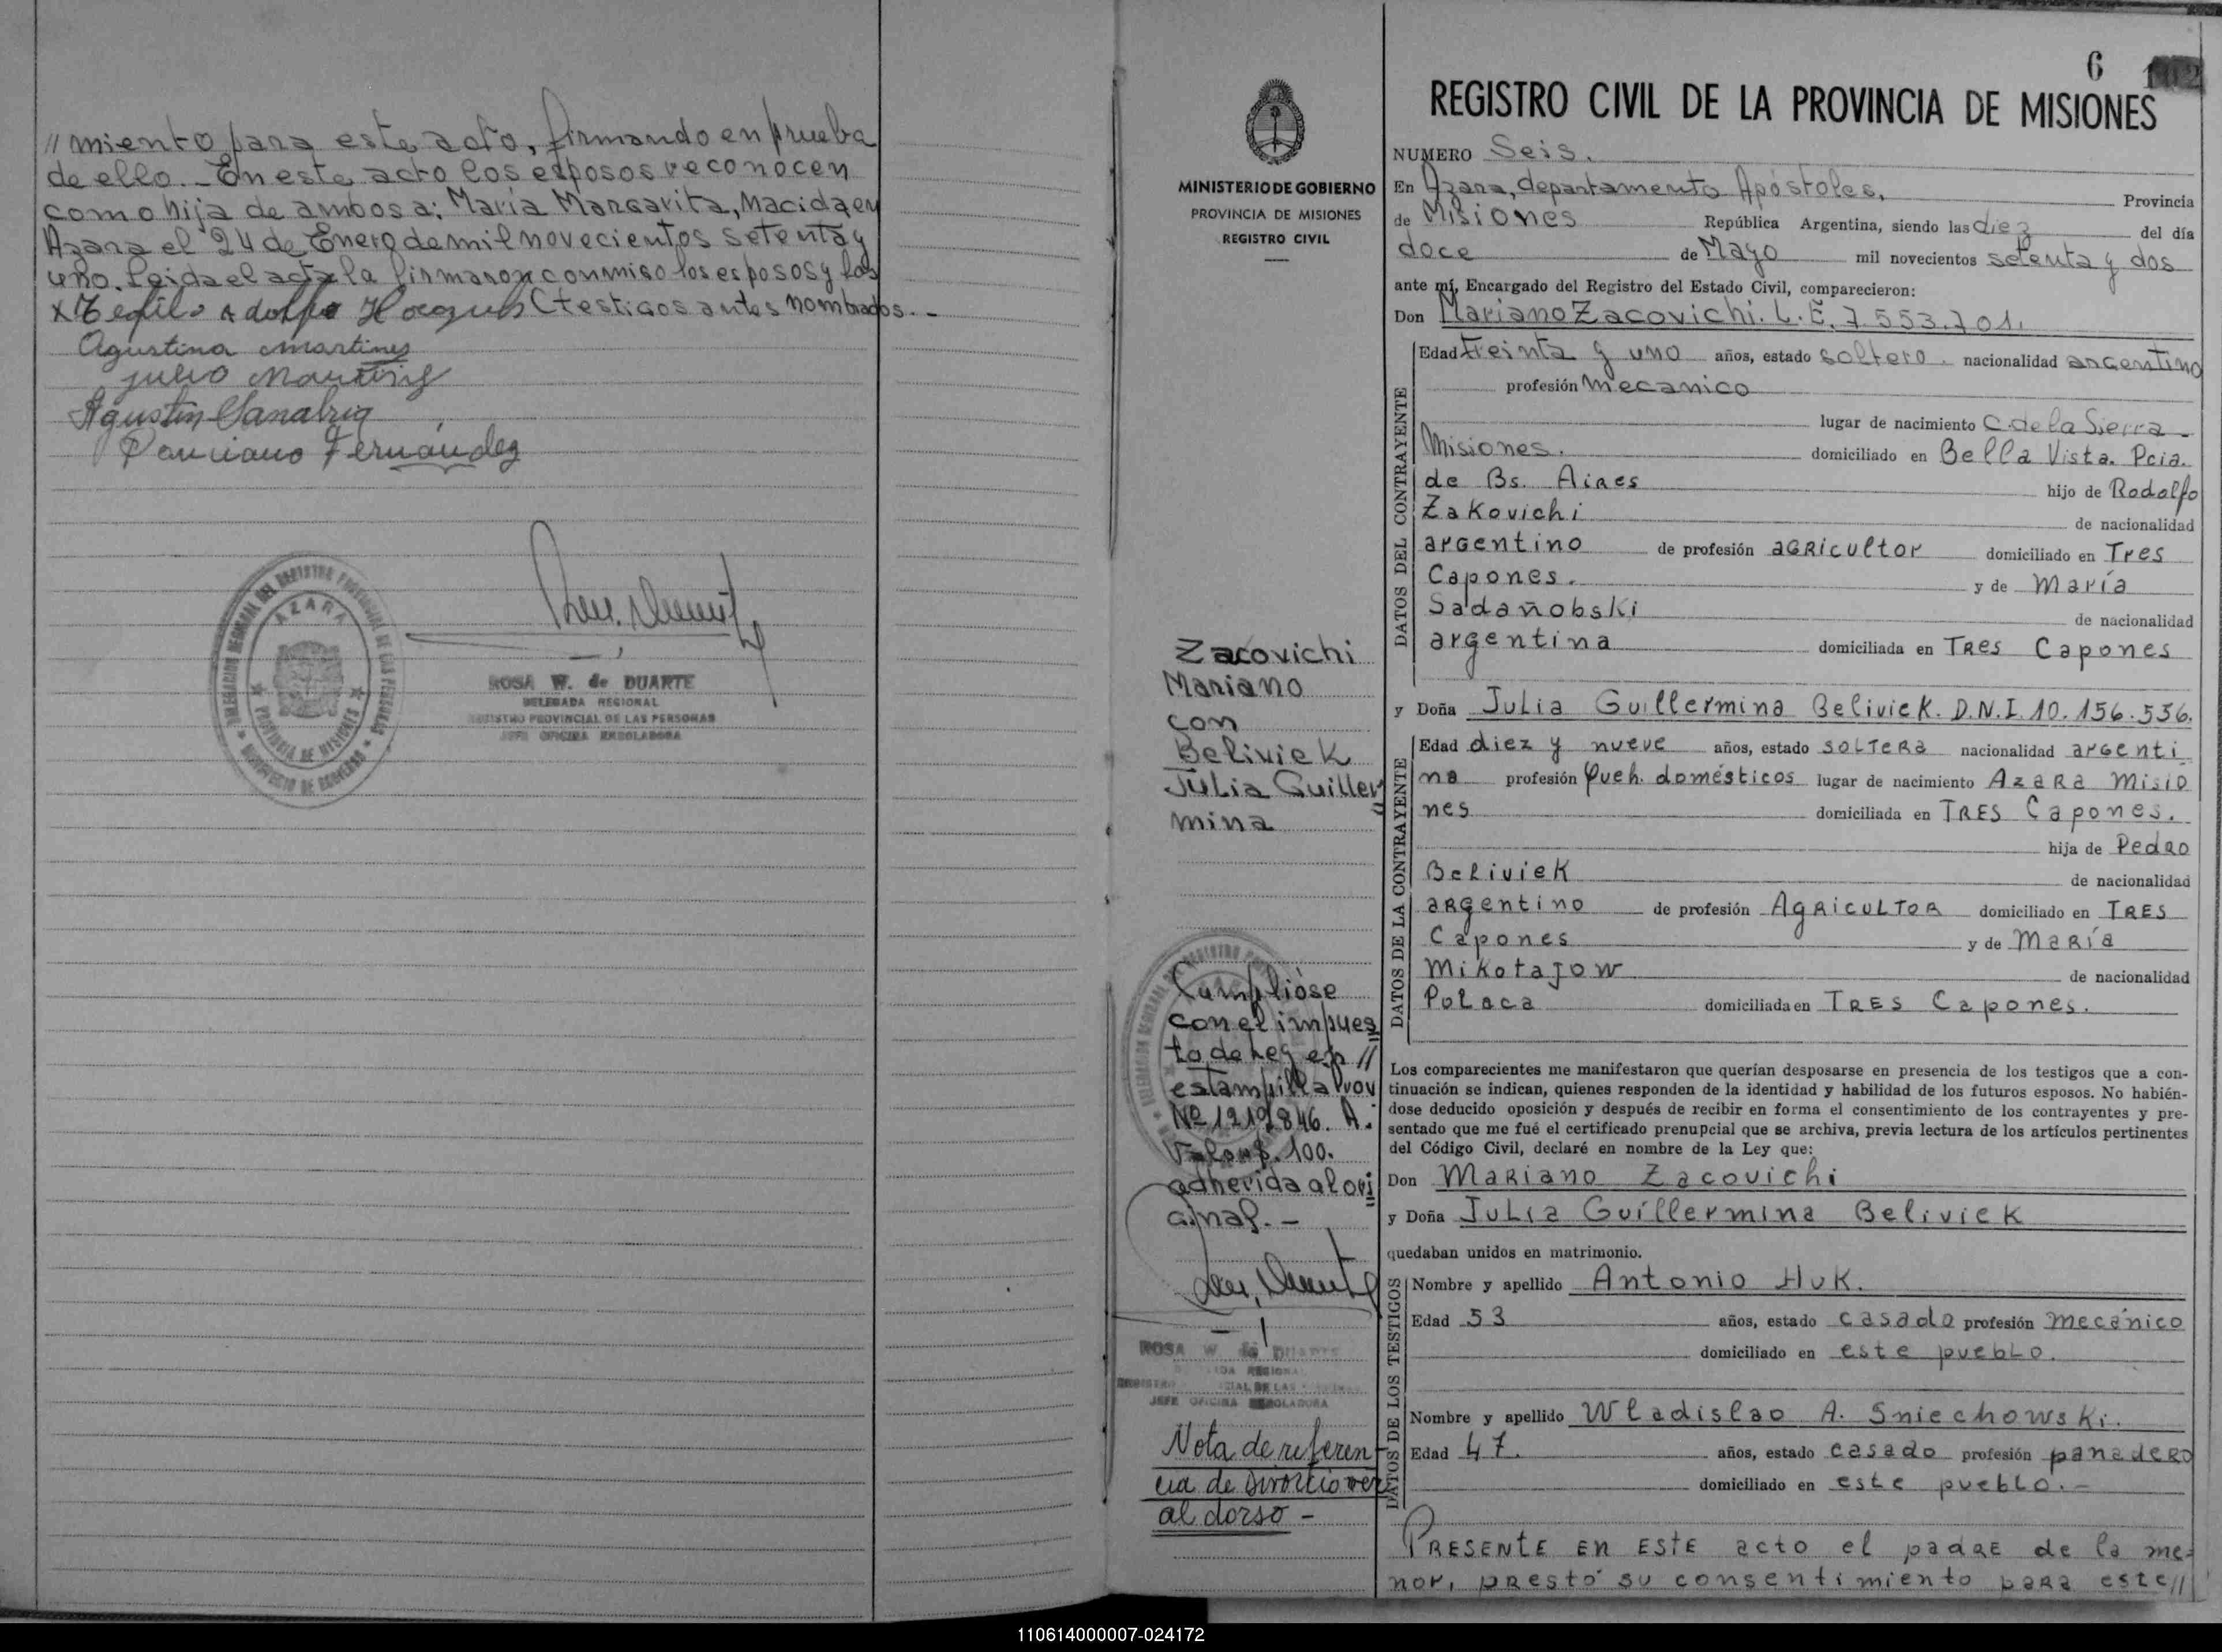 // miento para este acto, firmando en prueba
de ello._ En este acto los esposos reconocen
como hija de ambos a: María Margarita, Nacida en
Azara el 24 de Enero de mil novecientos setenta y
uno. Leida el acta la firmaron conmigo los esposos y los
x Teofilo Adolfo (testigos antes nombrados. -
Agustina Martinez
julio Martinez
Agustin Sanabria
Ponciano Fernández
DELEGACION REGIONAL DEL REGISTRO PROVINCIAL DE LAS PERSONAS
AZARA
PROVINCIA DE MISIONES
MINISTERIO DE GOBIERNO
ROSA W. de DUARTE
DELEGADA REGIONAL
REGISTRO PROVINCIAL DE LAS PERSONAS
JEFE OFICINA ENROLADORA
MINISTERIO DE GOBIERNO
PROVINCIA DE MISIONES
REGISTRO CIVIL
Zacovichi
Mariano
con
Beliviek
Julia Guiller
mina
Cumplióse
con el impues
to de Ley en //
estampilla prov
Nº 1219846. A.
Valor $. 100.
adherida al ori
ginal. -
ROSA W. de DUARTE
JEFE OFICINA ENROLADORA
Nota de referen-
cia de Divorcio ver
al dorso -
6
102
REGISTRO CIVIL DE LA PROVINCIA DE MISIONES
NUMERO Seis.
En Azara, departamento Apóstoles, Provincia
de Misiones República Argentina, siendo las diez del día
doce de Mayo mil novecientos setenta y dos
ante mí, Encargado del Registro del Estado Civil, comparecieron:
Don Mariano Zacovichi. L.E. 7.553.701.
DATOS DEL CONTRAYENTE
Edad treinta y uno años, estado soltero. nacionalidad argentino
profesión mecanico
lugar de nacimiento C. de la Sierra -
Misiones. domiciliado en Bella Vista. Pcia.
de Bs. Aires hijo de Rodolfo
Zakovichi de nacionalidad
argentino de profesión agricultor domiciliado en Tres
Capones. y de María
Sadañobski de nacionalidad
argentina domiciliada en Tres Capones
y Doña Julia Guillermina Beliviek. D.N.I. 10.156.536.
DATOS DE LA CONTRAYENTE
Edad diez y nueve años, estado soltera nacionalidad argenti
na profesión Queh. domésticos lugar de nacimiento Azara Misio
nes domiciliada en Tres Capones.
hija de Pedro
Beliviek de nacionalidad
argentino de profesión Agricultor domiciliado en Tres
Capones y de María
Mikotajow de nacionalidad
Polaca domiciliada en Tres Capones.
Los comparecientes me manifestaron que querían desposarse en presencia de los testigos que a con-
tinuación se indican, quienes responden de la identidad y habilidad de los futuros esposos. No habién-
dose deducido oposición y después de recibir en forma el consentimiento de los contrayentes y pre-
sentado que me fué el certificado prenupcial que se archiva, previa lectura de los artículos pertinentes
del Código Civil, declaré en nombre de la Ley que:
Don Mariano Zacovichi
y Doña Julia Guillermina Beliviek
quedaban unidos en matrimonio.
DATOS DE LOS TESTIGOS
Nombre y apellido Antonio Huk.
Edad 53 años, estado casado profesión mecánico
domiciliado en este pueblo.
Nombre y apellido Wladislao A. Sniechowski.
Edad 47. años, estado casado profesión panadero
domiciliado en este pueblo. -
Presente en este acto el padre de la me-
nor, prestó su consentimiento para este//
110614000007-024172